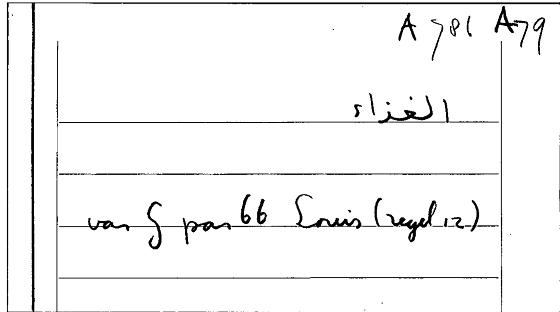 A 781 A79
الغذاء
van § par 66 Louis (regel 12)